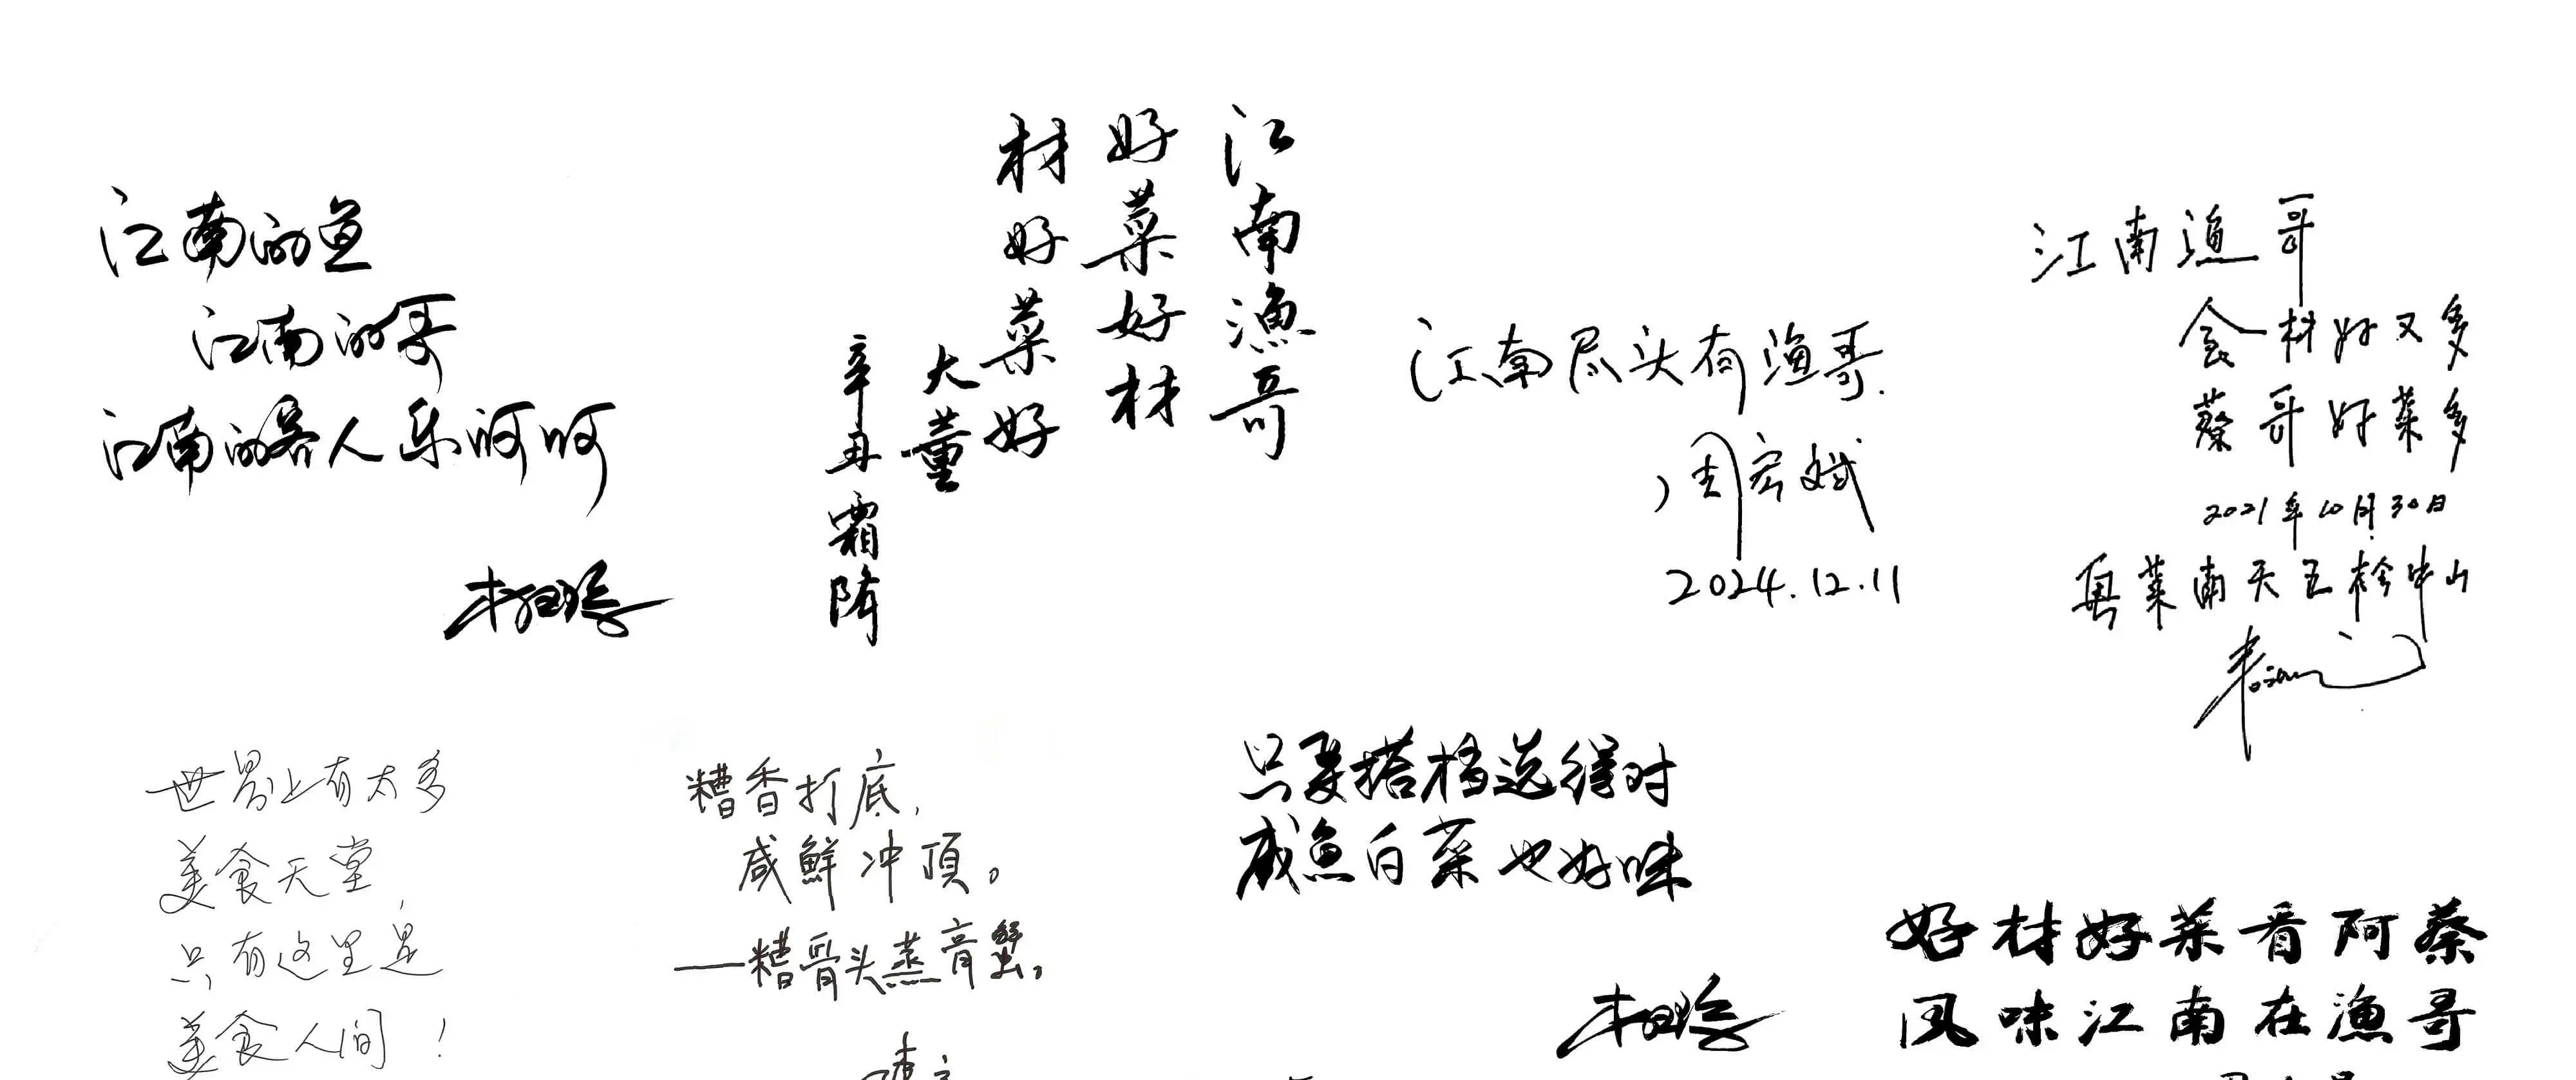 江南的鱼
江南的哥
江南的客人乐呵呵
江南渔哥
好菜好材
材好菜好
大董
辛丑霜降
江南尽头有渔哥.
周宏斌
2024.12.11
江南渔哥
食材好又多
蔡哥好菜多
2021年10月30日
粤菜南天王 中山
世界上有太多
美食天堂,
只有这里是
美食人间！
糟香打底,
咸鲜冲頂。
——糟骨头蒸膏蟹。
只要搭档选得对
咸魚白菜也好味
好材好菜看阿蔡
风味江南在渔哥